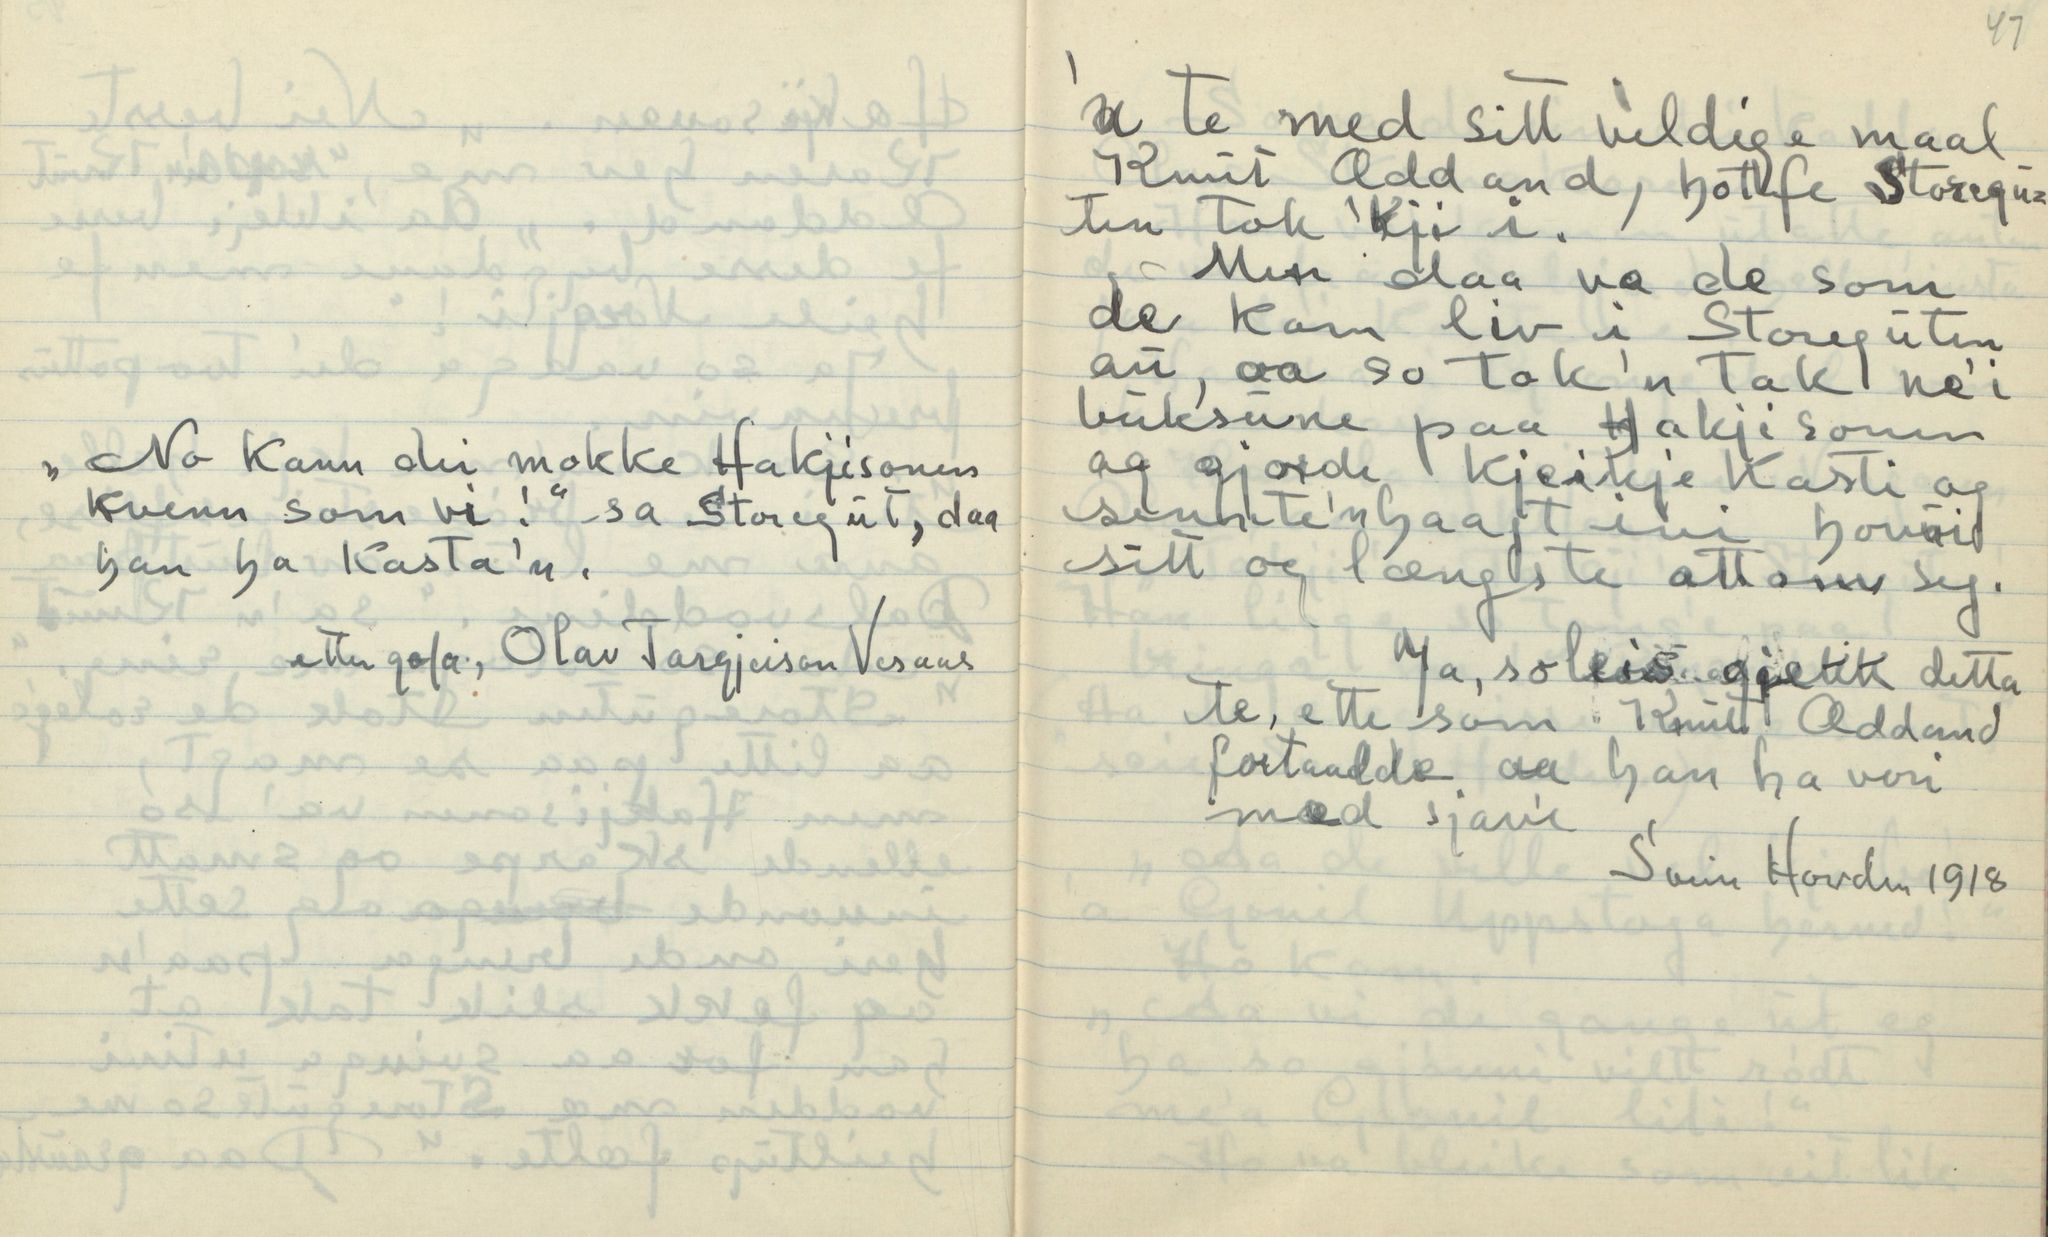 „No kann dei mokke Hakjisonen
kvenn som vi!" sa Storegut, daa
han ha kasta'n.
Olav Targjeison Vesaas
47
'n te med sitt veldige maal
Knut Oddand, hotfe Storegu-
ten tok 'kji i.
Men daa va de som
de kom liv i Storeguten
au, aa so tok'n tak ne'i
buksune paa Hakjisonen
og gjorde kjeikje kast i og
sennte'n haagt ivi hovuid
sitt og længste attom seg.
Ja, soleis gjekk detta
te, ette som Knut Oddand
fortaadde aa han ha vori
med sjav'e
Svein Hovden 1918